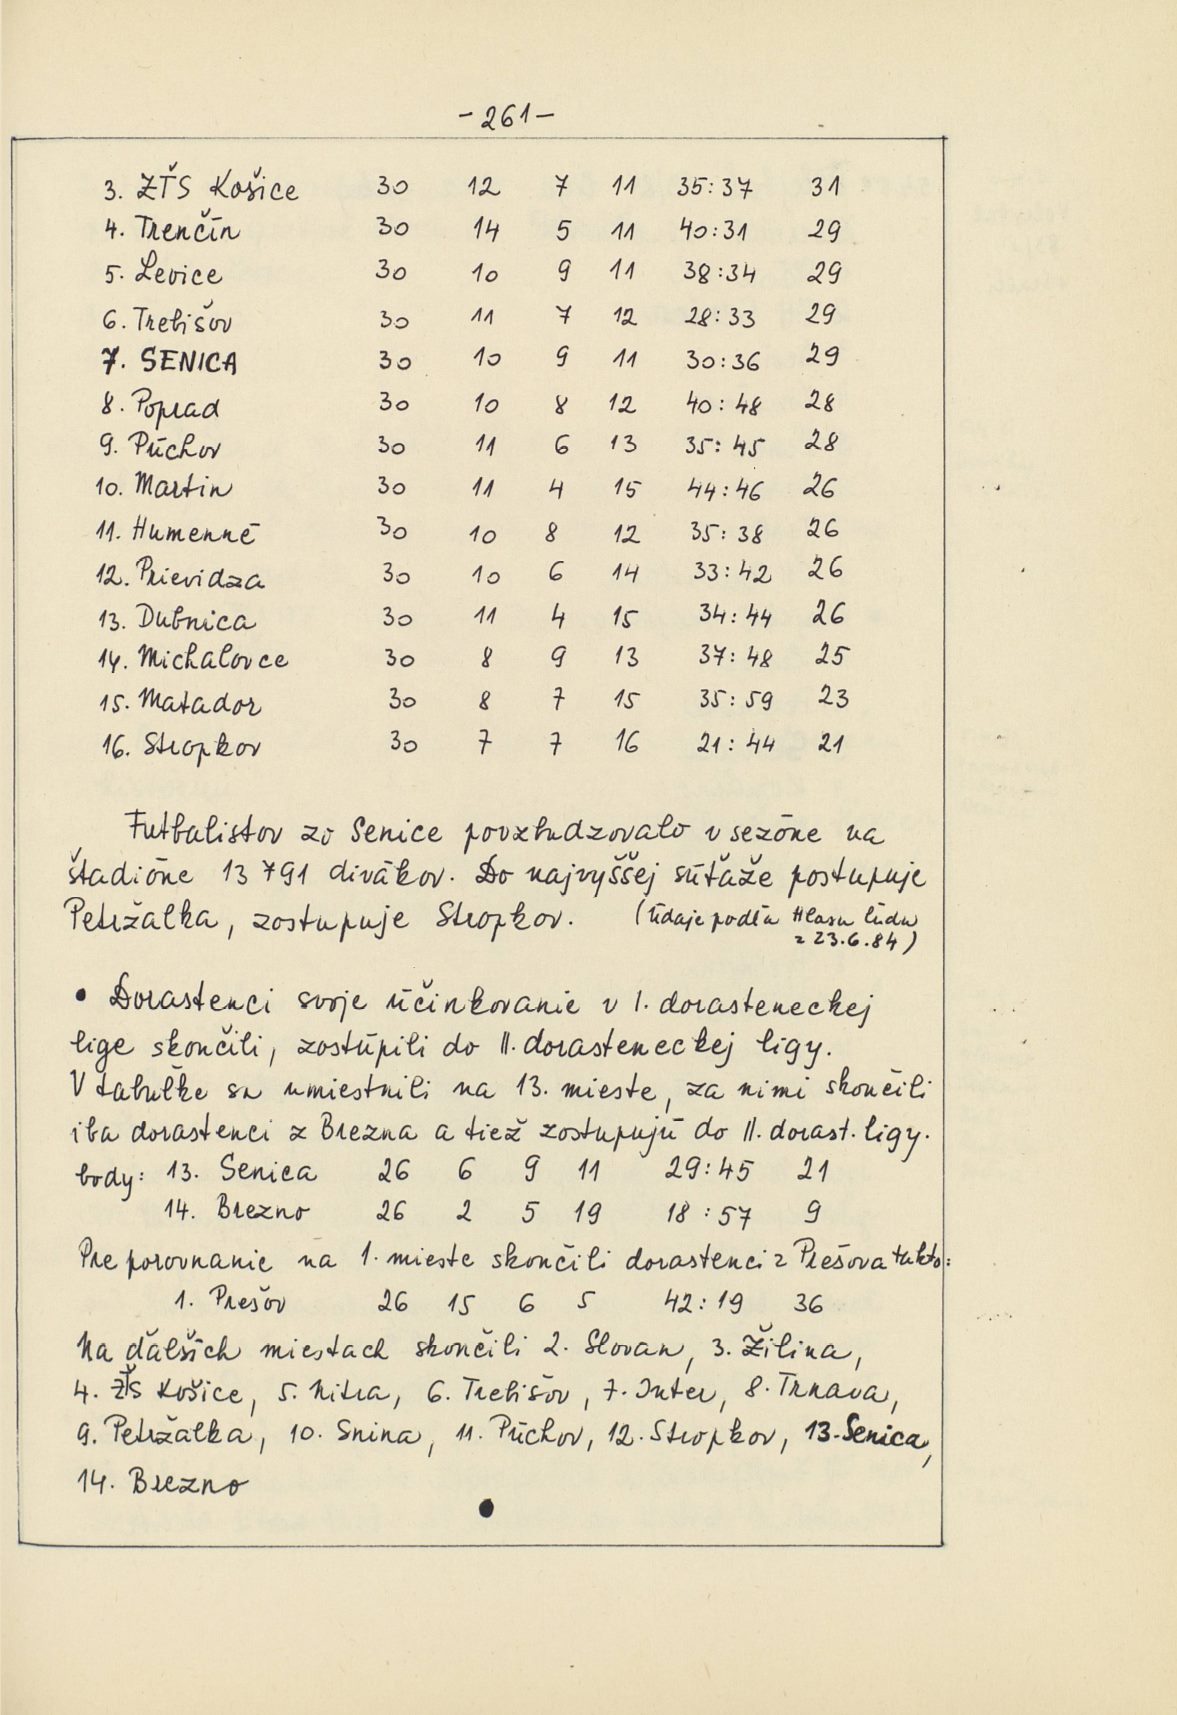 - 261 -
3. ZŤS Košice 30 12 7 11 35:37 31
4. Trenčín 30 14 5 11 40:31 29
5. Levice 30 10 9 11 38:34 29
6. Trebišov 30 11 7 12 28:33 29
7. SENICA 30 10 9 11 30:36 29
8. Poprad 30 10 8 12 40:48 28
9. Púchov 30 11 6 13 35:45 28
10. Martin 30 11 4 15 44:46 26
11. Humenné 30 10 8 12 35:38 26
12. Prievidza 30 10 6 14 33:42 26
13. Dubnica 30 11 4 15 34:44 26
14. Michalovce 30 8 9 13 37:48 25
15. Matador 30 8 7 15 35:59 23
16. Stropkov 30 7 7 16 21:44 21
Futbalistov zo Senice povzbudzovalo v sezóne na
štadióne 13 791 divákov. Do najvyššej súťaže postupuje
Petržalka, zostupuje Stropkov. (Údaje podľa Hlasu ľudu
z 23.6.84)
• Dorastenci svoje účinkovanie v I. dorasteneckej
lige skončili, zostúpili do II. dorasteneckej ligy.
V tabuľke sa umiestnili na 13. mieste, za nimi skončili
iba dorastenci z Brezna a tiež zostupujú do II. dorast. ligy.
body: 13. Senica 26 6 9 11 29:45 21
14. Brezno 26 2 5 19 18:57 9
Pre porovnanie na 1. mieste skončili dorastenci z Prešova takto:
1. Prešov 26 15 6 5 42:19 36
Na ďalších miestach skončili 2. Slovan, 3. Žilina,
4. ZŤS Košice, 5. Nitra, 6. Trebišov, 7. Inter, 8. Trnava,
9. Petržalka, 10. Snina, 11. Púchov, 12. Stropkov, 13. Senica,
14. Brezno